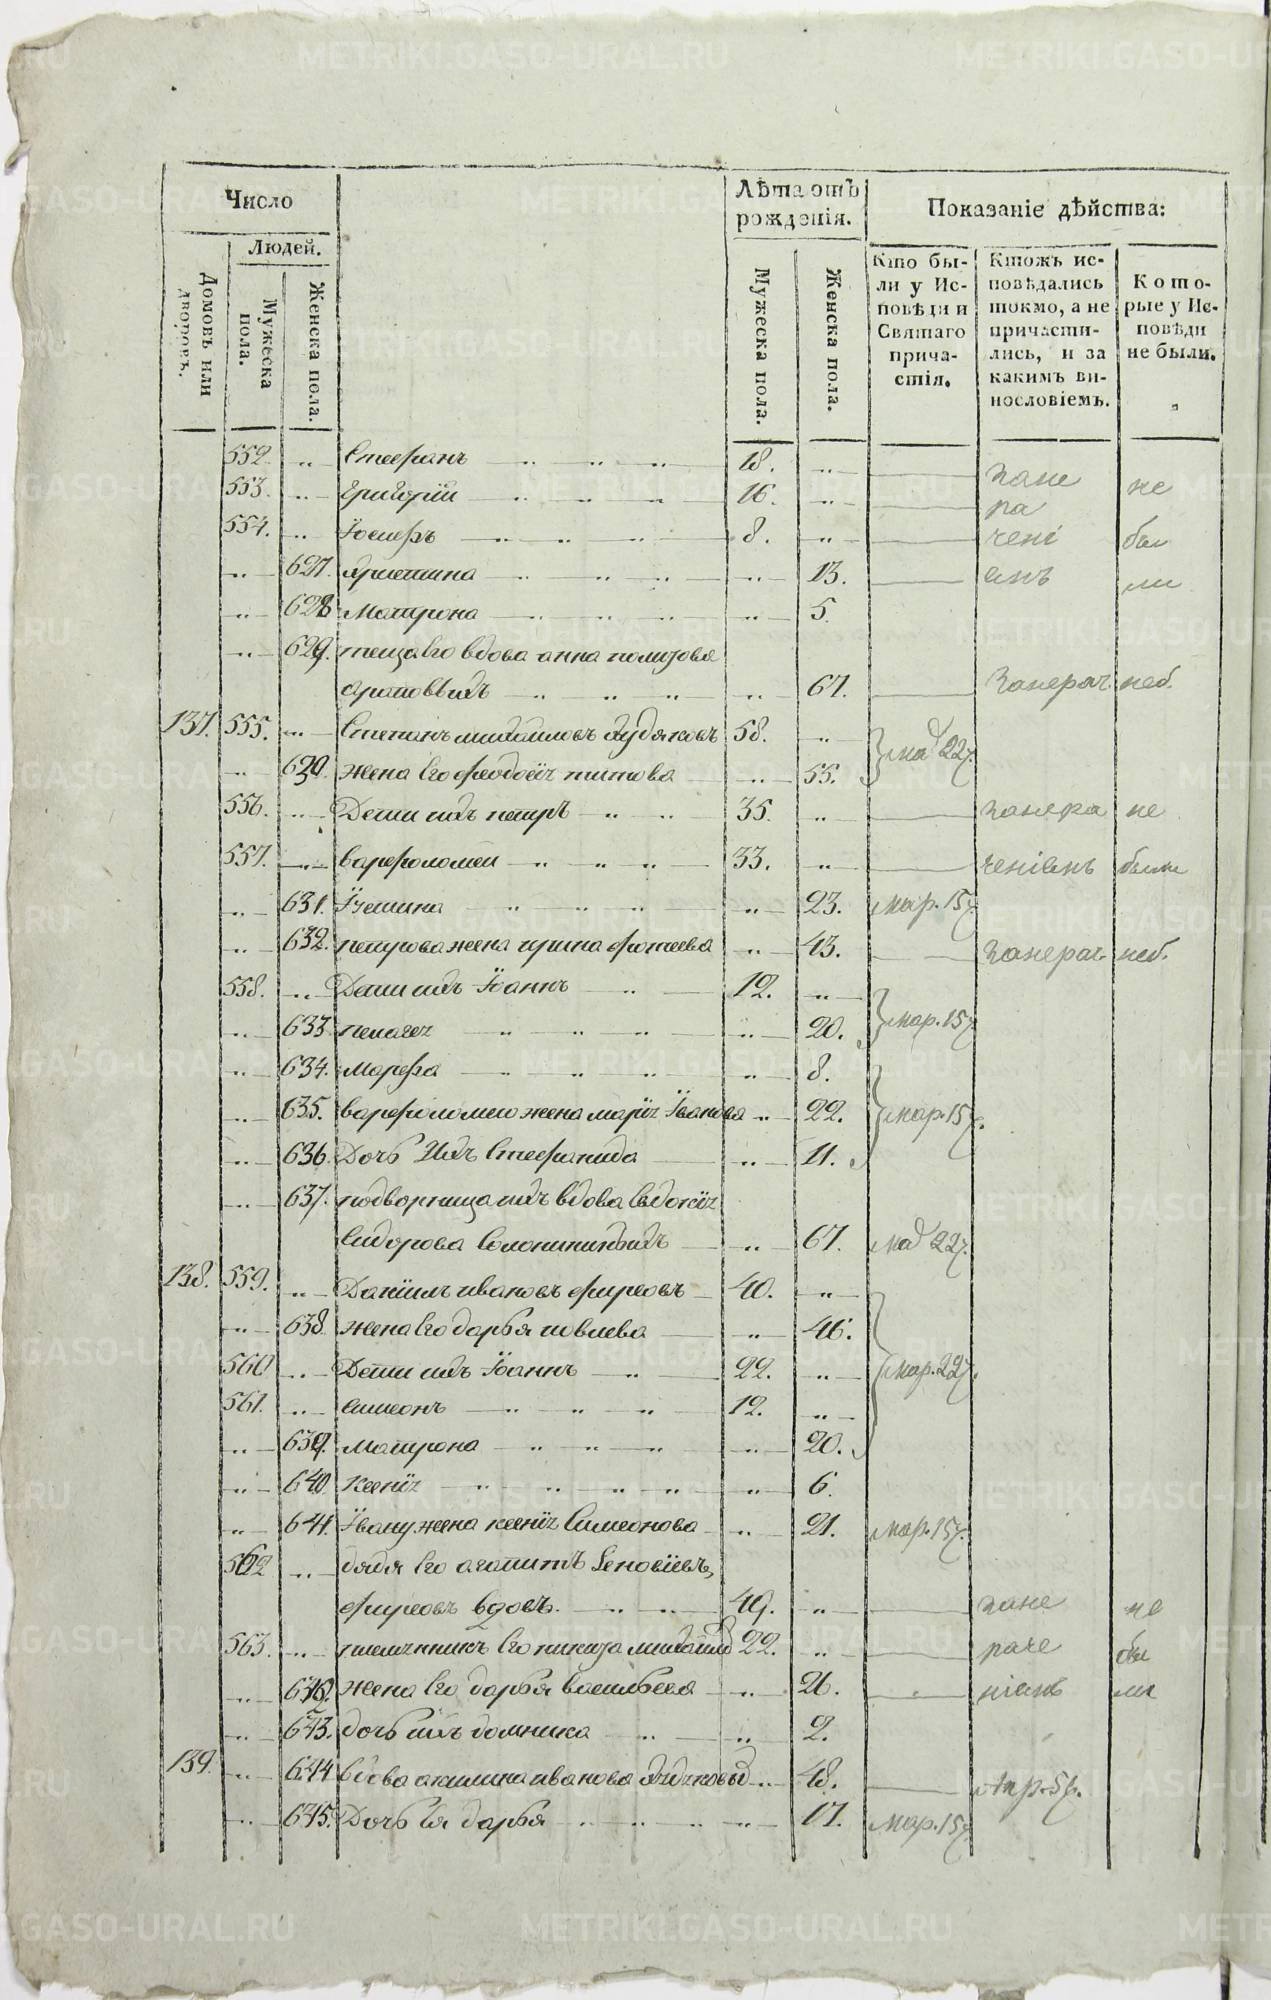 Число
Людей.
Домовъ или дворовъ.
Мужеска пола.
Женска пола.
Лѣта отъ рожденія.
Мужеска пола.
Женска пола.
Показаніе дѣйства:
Кто были у Исповѣди и Святаго причастія.
Ктожъ исповѣдались токмо, а не причастились, и за какимъ винословіемъ.
Которые у Исповѣди не были.
552. Стефанъ 18. за не не
553. Григорій 16. ра
554. Іосифъ 8. чені бы
627. Христина 13. емъ ли
628 Матрона 5.
629. теща его вдова анна
67. за нерач. не б.
137. 555. Степанъ михайловъ Худяковъ 58.
630 жена его феодосія титова 55. 22
556. Дети ихъ петръ 35. за нера не
557. варфоломей 33. ченіемъ были
631. Устина 23. мар. 15
632. петрова жена ирина фотеева 43. за нерач. не б.
558. Дети ихъ Іоаннъ 12.
633. пелагея 20. мар. 15
634. Марфа 8.
635. варфоломею жена марія Іванова 22. мар. 15
636. Дочь Ихъ Стефанида 11.
637. подворница ихъ вдова Евдокія
Сидорова 67. 22
138. 559. Даніилъ ивановъ фирсовъ 40.
638 жена его дарья иовлева 46.
560 Дети ихъ Іоаннъ 22. мар. 22
561. симеонъ 12.
639. Матрона 20.
640. Ксенія 6.
641. Івану жена ксенія Симеонова 21. мар. 15
562 дядя его агапитъ Зеновіевъ,
фирсовъ вдовъ. 49. за не не
563. племянникъ его никита 22. раче бы
642. жена его дарья васильева 26. ніемъ ли
643. дочь ихъ домника 2.
139. 644 вдова акилина иванова 48. Апр. 5
645. Дочь Ея дарья 17. мар. 15
METRIKI.GASO-URAL.RU